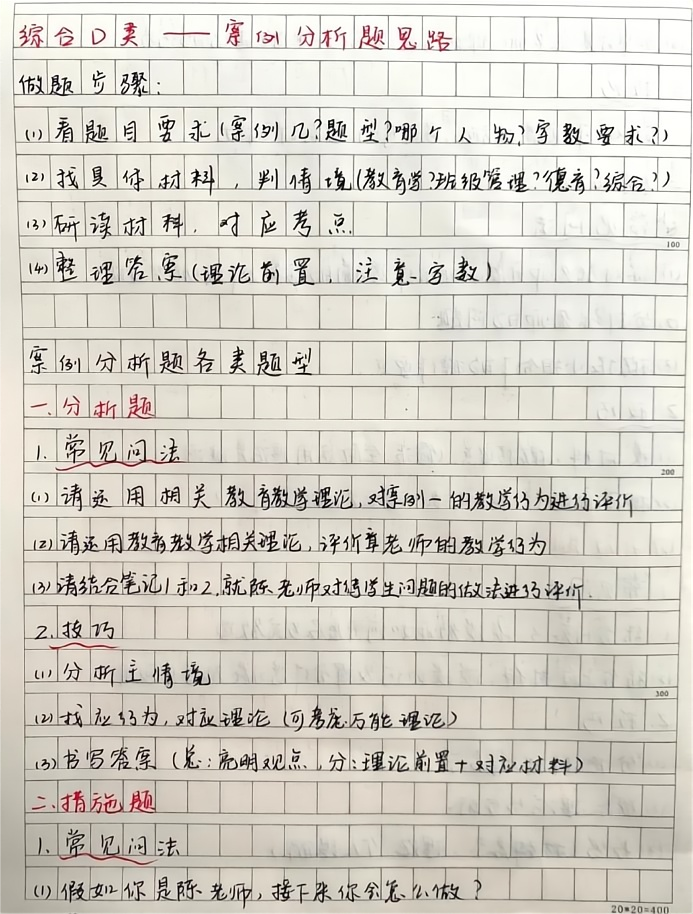 综合D类——案例分析题思路
做题步骤:
(1)看题目要求(案例几?题型?哪个人物?字数要求?)
(2)找具体材料,判情境(教育学?班级管理?德育?综合?)
(3)研读材料,对应考点
100
(4)整理答案(理论前置,注意字数)
案例分析题各类题型
一.分析题
1.常见问法
200
(1)请运用相关教育教学理论,对案例一的教学行为进行评价
(2)请运用教育教学相关理论,评价章老师的教学行为
(3)请结合笔记1和2,就陈老师对待学生问题的做法进行评价.
2.技巧
(1)分析主情境
300
(2)找应行为,对应理论(可考虑万能理论)
(3)书写答案(总:亮明观点,分:理论前置+对应材料)
二.措施题
1.常见问法
(1)假如你是陈老师,接下来你会怎么做?
20*20=400